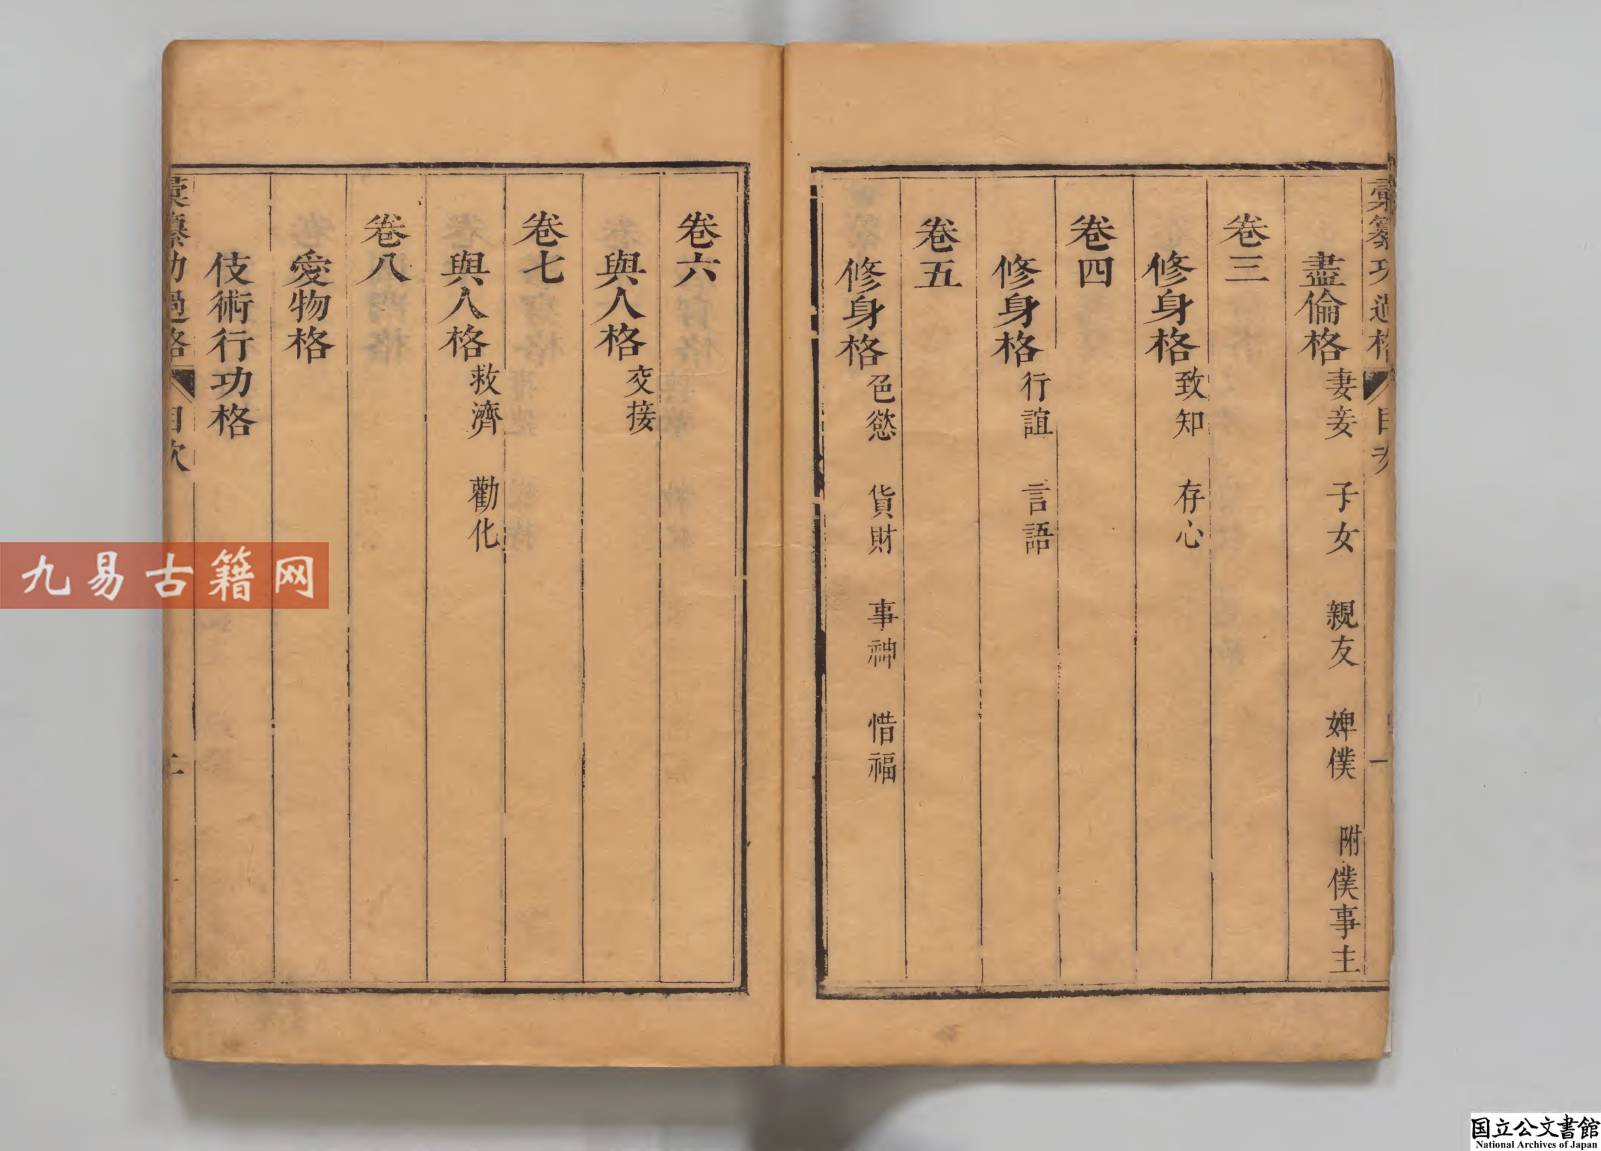 彙纂功過格 目次 一
盡倫格 妻妾 子女 親友 婢僕 附僕事主
卷三
修身格 致知 存心
卷四
修身格 行誼 言語
卷五
修身格 色慾 貨財 事神 惜福
卷六
與人格 交接
卷七
與人格 救濟 勸化
卷八
愛物格
伎術行功格
彙纂功過格 目次 二
九易古籍网
国立公文書館
National Archives of Japan